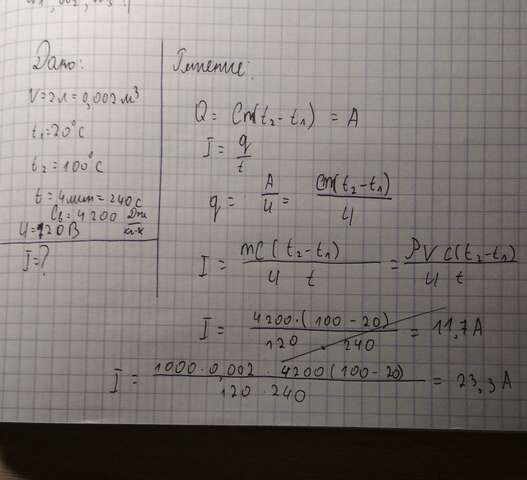 Дано:
V=2л=0,002м³
t₁=20°C
t₂=100°C
t=4мин=240с
Cв=4200 Дж/кг·К
U=120В
I=?
Решение:
Q = Cm(t₂-t₁) = A
I = q/t
q = A/U = cm(t₂-t₁)/U
I = mc(t₂-t₁)/U t = ρVc(t₂-t₁)/U t
I = 4200·(100-20)/120 · 240 = 11,7A
I = 1000·0,002·4200(100-20)/120·240 = 23,3A